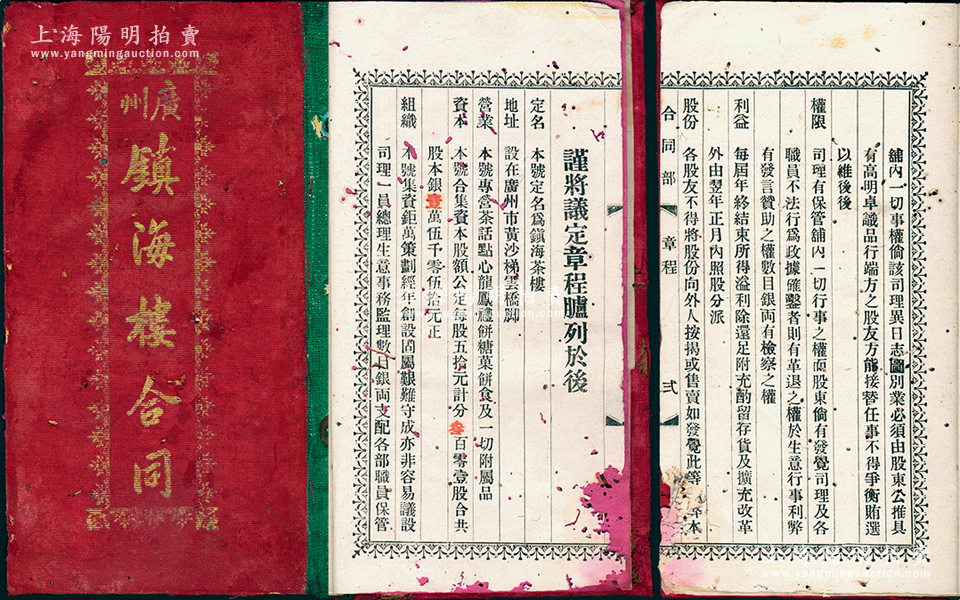 上海陽明拍賣
www.yangmingauction.com
廣州
鎮海樓合同
謹將議定章程臚列於後
定名 本號定名爲鎮海茶樓
地址 設在廣州市黃沙梯雲橋脚
營業 本號專營茶話點心龍鳳禮餅糖菓餅食及一切附屬品
資本 本號合集資本股額公定每股五拾元計分叁百零壹股合共
股本銀壹萬伍千零伍拾元正
組織 本號集資鉅萬策劃經年創設固屬艱難守成亦非容易議設
司理一員總理生意事務監理數目銀両支配各部職員保管
舖内一切事權倘該司理異日志圖別業必須由股東公推具
有高明卓識品行端方之股友方能接替任事不得爭衡賄選
以維後後
權限 司理有保管舖内一切行事之權而股東倘有發覺司理及各
職員不法行爲政據確鑿者則有革退之權於生意行事利弊
有發言贊助之權數目銀両有檢察之權
利益 每屆年終結束所得溢利除還足附充酌留存貨及擴充改革
外由翌年正月内照股分派
股份 各股友不得將股份向外人按揭或售賣如發覺此等
本
合同部 章程 弍